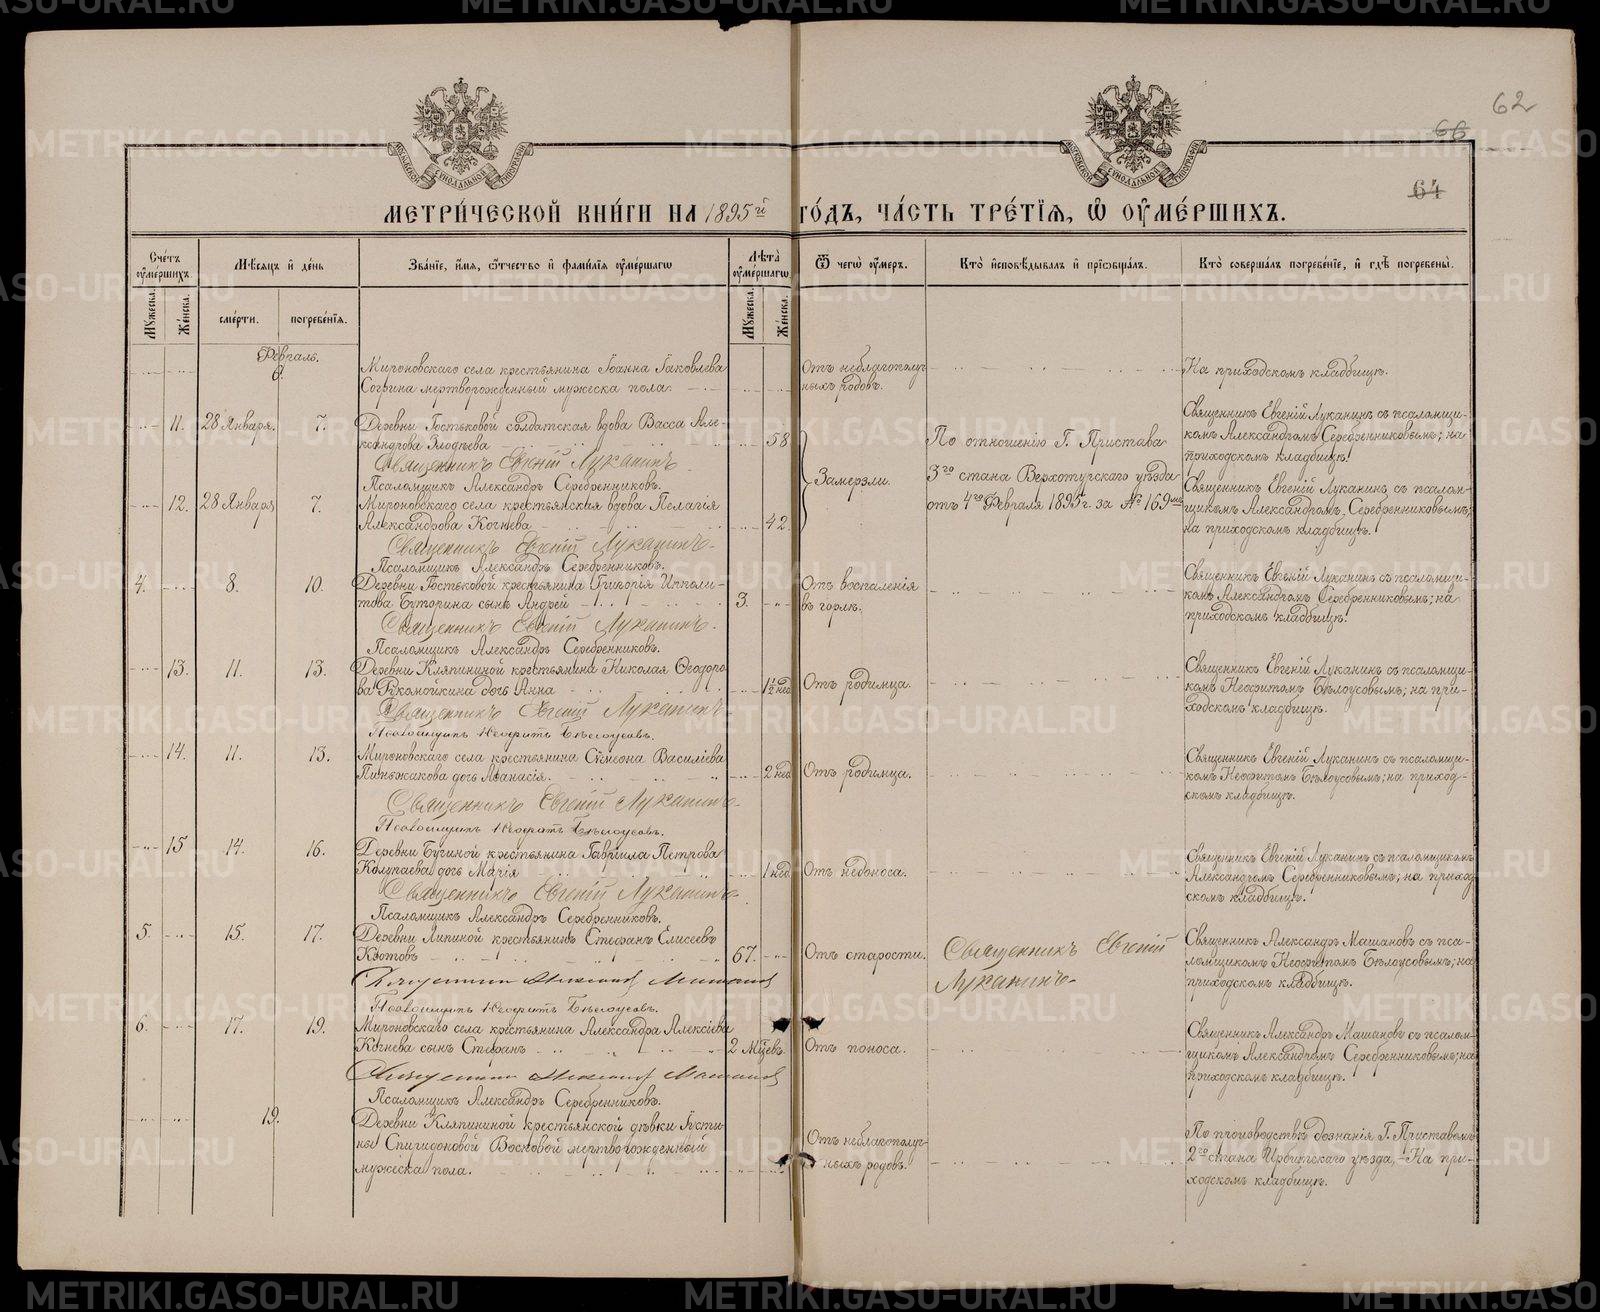 62
66
64
МОСКОВСКОЙ СѴНОДАЛЬНОЙ ТИПОГРАФІИ
МОСКОВСКОЙ СѴНОДАЛЬНОЙ ТИПОГРАФІИ
МЕТРИ́ЧЕСКОЙ КНИ́ГИ НА 1895й ГО́ДЪ, ЧА́СТЬ ТРЕ́ТІѦ, Ѽ ОУ҆МЕ́РШИХЪ.
Сче́тъ оу҆ме́ршихъ.
Мѣ́сяцъ и҆ де́нь
Зва́ніе, и҆́мѧ, ѻ҆́тчество и҆ фами́лїѧ оу҆ме́ршагѡ
Лѣ́та оу҆ме́ршагѡ
Ѿ чегѡ̀ оу҆́меръ.
Кто̀ и҆сповѣ́дывалъ и҆ прїѡбща́лъ.
Кто̀ соверша́лъ погребе́нїе, и҆ гдѣ̀ погребены̀.
Му́жеска.
Же́нска.
сме́рти.
погребе́нїѧ.
Му́жеска.
Же́нска.
Февраль.
6.
Мироновскаго села крестьянина Іоанна Іаковлева
Согрина мертворожденный мужеска пола.
Отъ неблагополуч-
ныхъ родовъ.
На приходскомъ кладбищѣ.
11. 28 Января. 7.
Деревни Гостьковой солдатская вдова Васса Але-
ксандрова Злодѣева
58
Священникъ Евгеній Луканинъ.
Псаломщикъ Александръ Серебренниковъ.
Замерзли.
По отношенію Г. Пристава
3го стана Верхотурскаго уѣзда
отъ 4го Февраля 1895 г. за № 169мъ
Священникъ Евгеній Луканинъ съ псаломщи-
комъ Александромъ Серебренниковымъ; на
приходскомъ кладбищѣ.
12. 28 Января 7.
Мироновскаго села крестьянская вдова Пелагія
Александрова Кочнева
42.
Священникъ Евгеній Луканинъ.
Псаломщикъ Александръ Серебренниковъ.
Священникъ Евгеній Луканинъ съ псалом-
щикомъ Александромъ Серебренниковымъ;
на приходскомъ кладбищѣ.
4. 8. 10.
Деревни Гостьковой крестьянина Григорія Ипполи-
това Буторина сынъ Андрей
3.
Священникъ Евгеній Луканинъ.
Псаломщикъ Александръ Серебренниковъ.
Отъ воспаленія
въ горлѣ.
Священникъ Евгеній Луканинъ съ псаломщи-
комъ Александромъ Серебренниковымъ; на
приходскомъ кладбищѣ.
13. 11. 13.
Деревни Кляпининой крестьянина Николая Ѳеодоро-
ва Рукомойкина дочь Анна
1½ нед
Священникъ Евгеній Луканинъ
Псаломщикъ Неофитъ Бѣлоусовъ.
Отъ родимца.
Священникъ Евгеній Луканинъ съ псаломщи-
комъ Неофитомъ Бѣлоусовымъ; на при-
ходскомъ кладбищѣ.
14. 11. 13.
Мироновскаго села крестьянина Сѵмеона Василіева
Пиньжакова дочь Аѳанасія.
2 нед
Священникъ Евгеній Луканинъ.
Псаломщикъ Неофитъ Бѣлоусовъ.
Отъ родимца.
Священникъ Евгеній Луканинъ съ псаломщи-
комъ Неофитомъ Бѣлоусовымъ; на приход-
скомъ кладбищѣ.
15 14. 16.
Деревни Бучиной крестьянина Гавріила Петрова
Колупаева дочь Марія
1 нед
Священникъ Евгеній Луканинъ.
Псаломщикъ Александръ Серебренниковъ.
Отъ недоноса.
Священникъ Евгеній Луканинъ съ псаломщикомъ
Александромъ Серебренниковымъ; на приход
скомъ кладбищѣ.
5. 15. 17.
Деревни Липиной крестьянинъ Стефанъ Елисеевъ
Костовъ
67.
Священникъ Александръ Машановъ
Псаломщикъ Неофитъ Бѣлоусовъ.
Отъ старости.
Священникъ Евгеній
Луканинъ.
Священникъ Александръ Машановъ съ пса-
ломщикомъ Неофитомъ Бѣлоусовымъ; на
приходскомъ кладбищѣ.
6. 17. 19.
Мироновскаго села крестьянина Александра Алексіева
Кочнева сынъ Стефанъ
2 Мѣсцевъ
Священникъ Александръ Машановъ
Псаломщикъ Александръ Серебренниковъ.
Отъ поноса.
Священникъ Александръ Машановъ съ псалом-
щикомъ Александромъ Серебренниковымъ; на
приходскомъ кладбищѣ.
19.
Деревни Кляпининой крестьянской дѣвки Іусти-
ны Спиридоновой Восковой мертворожденный
мужеска пола.
Отъ неблагополуч-
ныхъ родовъ.
По производствѣ дознанія Г. Приставомъ
2го стана Ирбитскаго уѣзда, - На при-
ходскомъ кладбищѣ.
METRIKI.GASO-URAL.RU